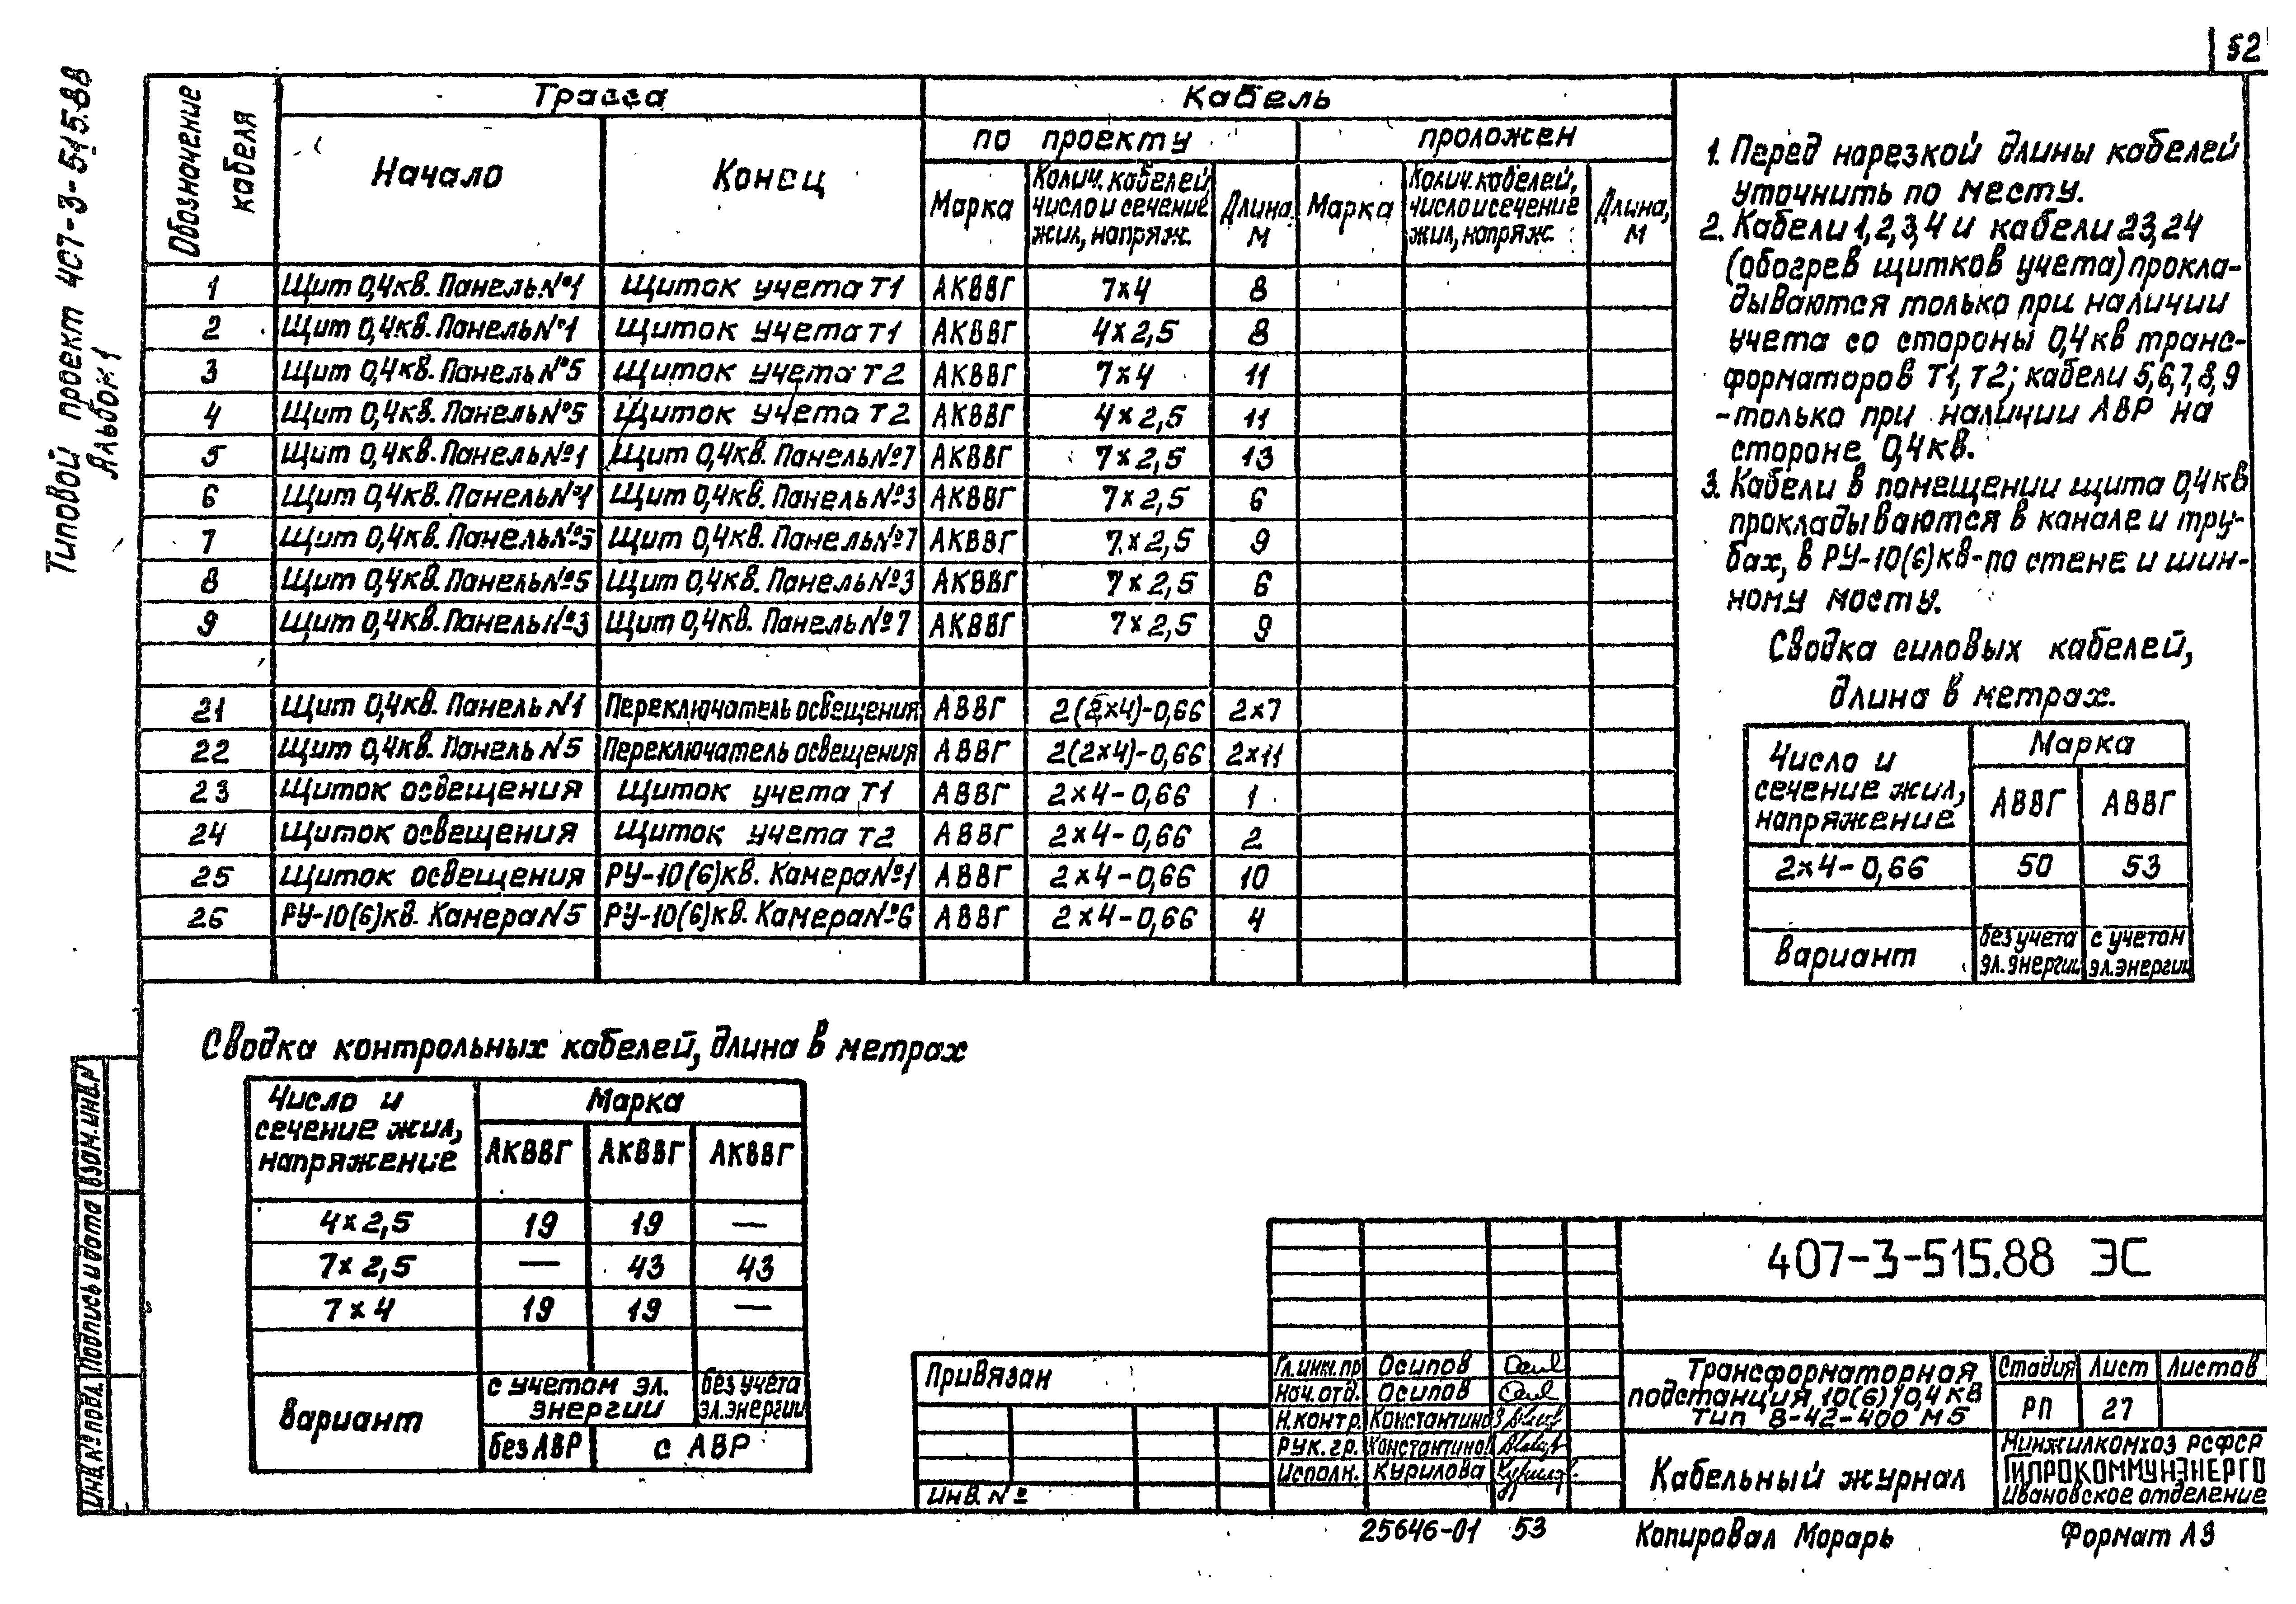 52
Типовой проект 407-3-515.88
Альбом 1
Обозначение кабеля
Трасса
Кабель
Начало
Конец
по проекту
проложен
Марка
Колич. кабелей, число и сечение жил, напряж.
Длина, м
Марка
Колич. кабелей, число и сечение жил, напряж.
Длина, м
1 Щит 0,4кв. Панель №1 Щиток учета Т1 АКВВГ 7×4 8
2 Щит 0,4кв. Панель №1 Щиток учета Т1 АКВВГ 4×2,5 8
3 Щит 0,4кв. Панель №5 Щиток учета Т2 АКВВГ 7×4 11
4 Щит 0,4кв. Панель №5 Щиток учета Т2 АКВВГ 4×2,5 11
5 Щит 0,4кв. Панель №1 Щит 0,4кв. Панель №7 АКВВГ 7×2,5 13
6 Щит 0,4кв. Панель №1 Щит 0,4кв. Панель №3 АКВВГ 7×2,5 6
7 Щит 0,4кв. Панель №5 Щит 0,4кв. Панель №7 АКВВГ 7×2,5 9
8 Щит 0,4кв. Панель №5 Щит 0,4кв. Панель №3 АКВВГ 7×2,5 6
9 Щит 0,4кв. Панель №3 Щит 0,4кв. Панель №7 АКВВГ 7×2,5 9
21 Щит 0,4кв. Панель N1 Переключатель освещения АВВГ 2(2×4)-0,66 2×7
22 Щит 0,4кв. Панель N5 Переключатель освещения АВВГ 2(2×4)-0,66 2×11
23 Щиток освещения Щиток учета Т1 АВВГ 2×4-0,66 1
24 Щиток освещения Щиток учета Т2 АВВГ 2×4-0,66 2
25 Щиток освещения РУ-10(6)кв. Камера №1 АВВГ 2×4-0,66 10
26 РУ-10(6)кв. Камера N5 РУ-10(6)кв. Камера №6 АВВГ 2×4-0,66 4
1. Перед нарезкой длины кабелей
уточнить по месту.
2. Кабели 1,2,3,4 и кабели 23,24
(обогрев щитков учета) прокла-
дываются только при наличии
учета со стороны 0,4кв транс-
форматоров Т1, Т2; кабели 5,6,7,8,9
-только при наличии АВР на
стороне 0,4кв.
3. Кабели в помещении щита 0,4кв
прокладываются в канале и тру-
бах, в РУ-10(6)кв-по стене и шин-
ному мосту.
Сводка силовых кабелей,
длина в метрах.
Число и сечение жил, напряжение
Марка
АВВГ АВВГ
2×4-0,66 50 53
Вариант
без учета эл.энергии
с учетом эл.энергии
Сводка контрольных кабелей, длина в метрах
Число и сечение жил, напряжение
Марка
АКВВГ АКВВГ АКВВГ
4×2,5 19 19 —
7×2,5 — 43 43
7×4 19 19 —
Вариант
с учетом эл. энергии
без учета эл.энергии
без АВР
с АВР
Взам.инв.N
Подпись и дата
Инв.№ подл.
Привязан
Инв. №
Гл.инж.пр Осипов
Нач.отд. Осипов
Н.контр. Константинов
Рук.гр. Константинов
Исполн. Курилова
407-3-515.88 ЭС
Трансформаторная
подстанция 10(6)/0,4 кв
тип В-42-400 М5
Стадия Лист Листов
РП 27
Кабельный журнал
Минжилкомхоз РСФСР
ГИПРОКОММУНЭНЕРГО
Ивановское отделение
25646-01 53
Копировал Морарь
Формат А3